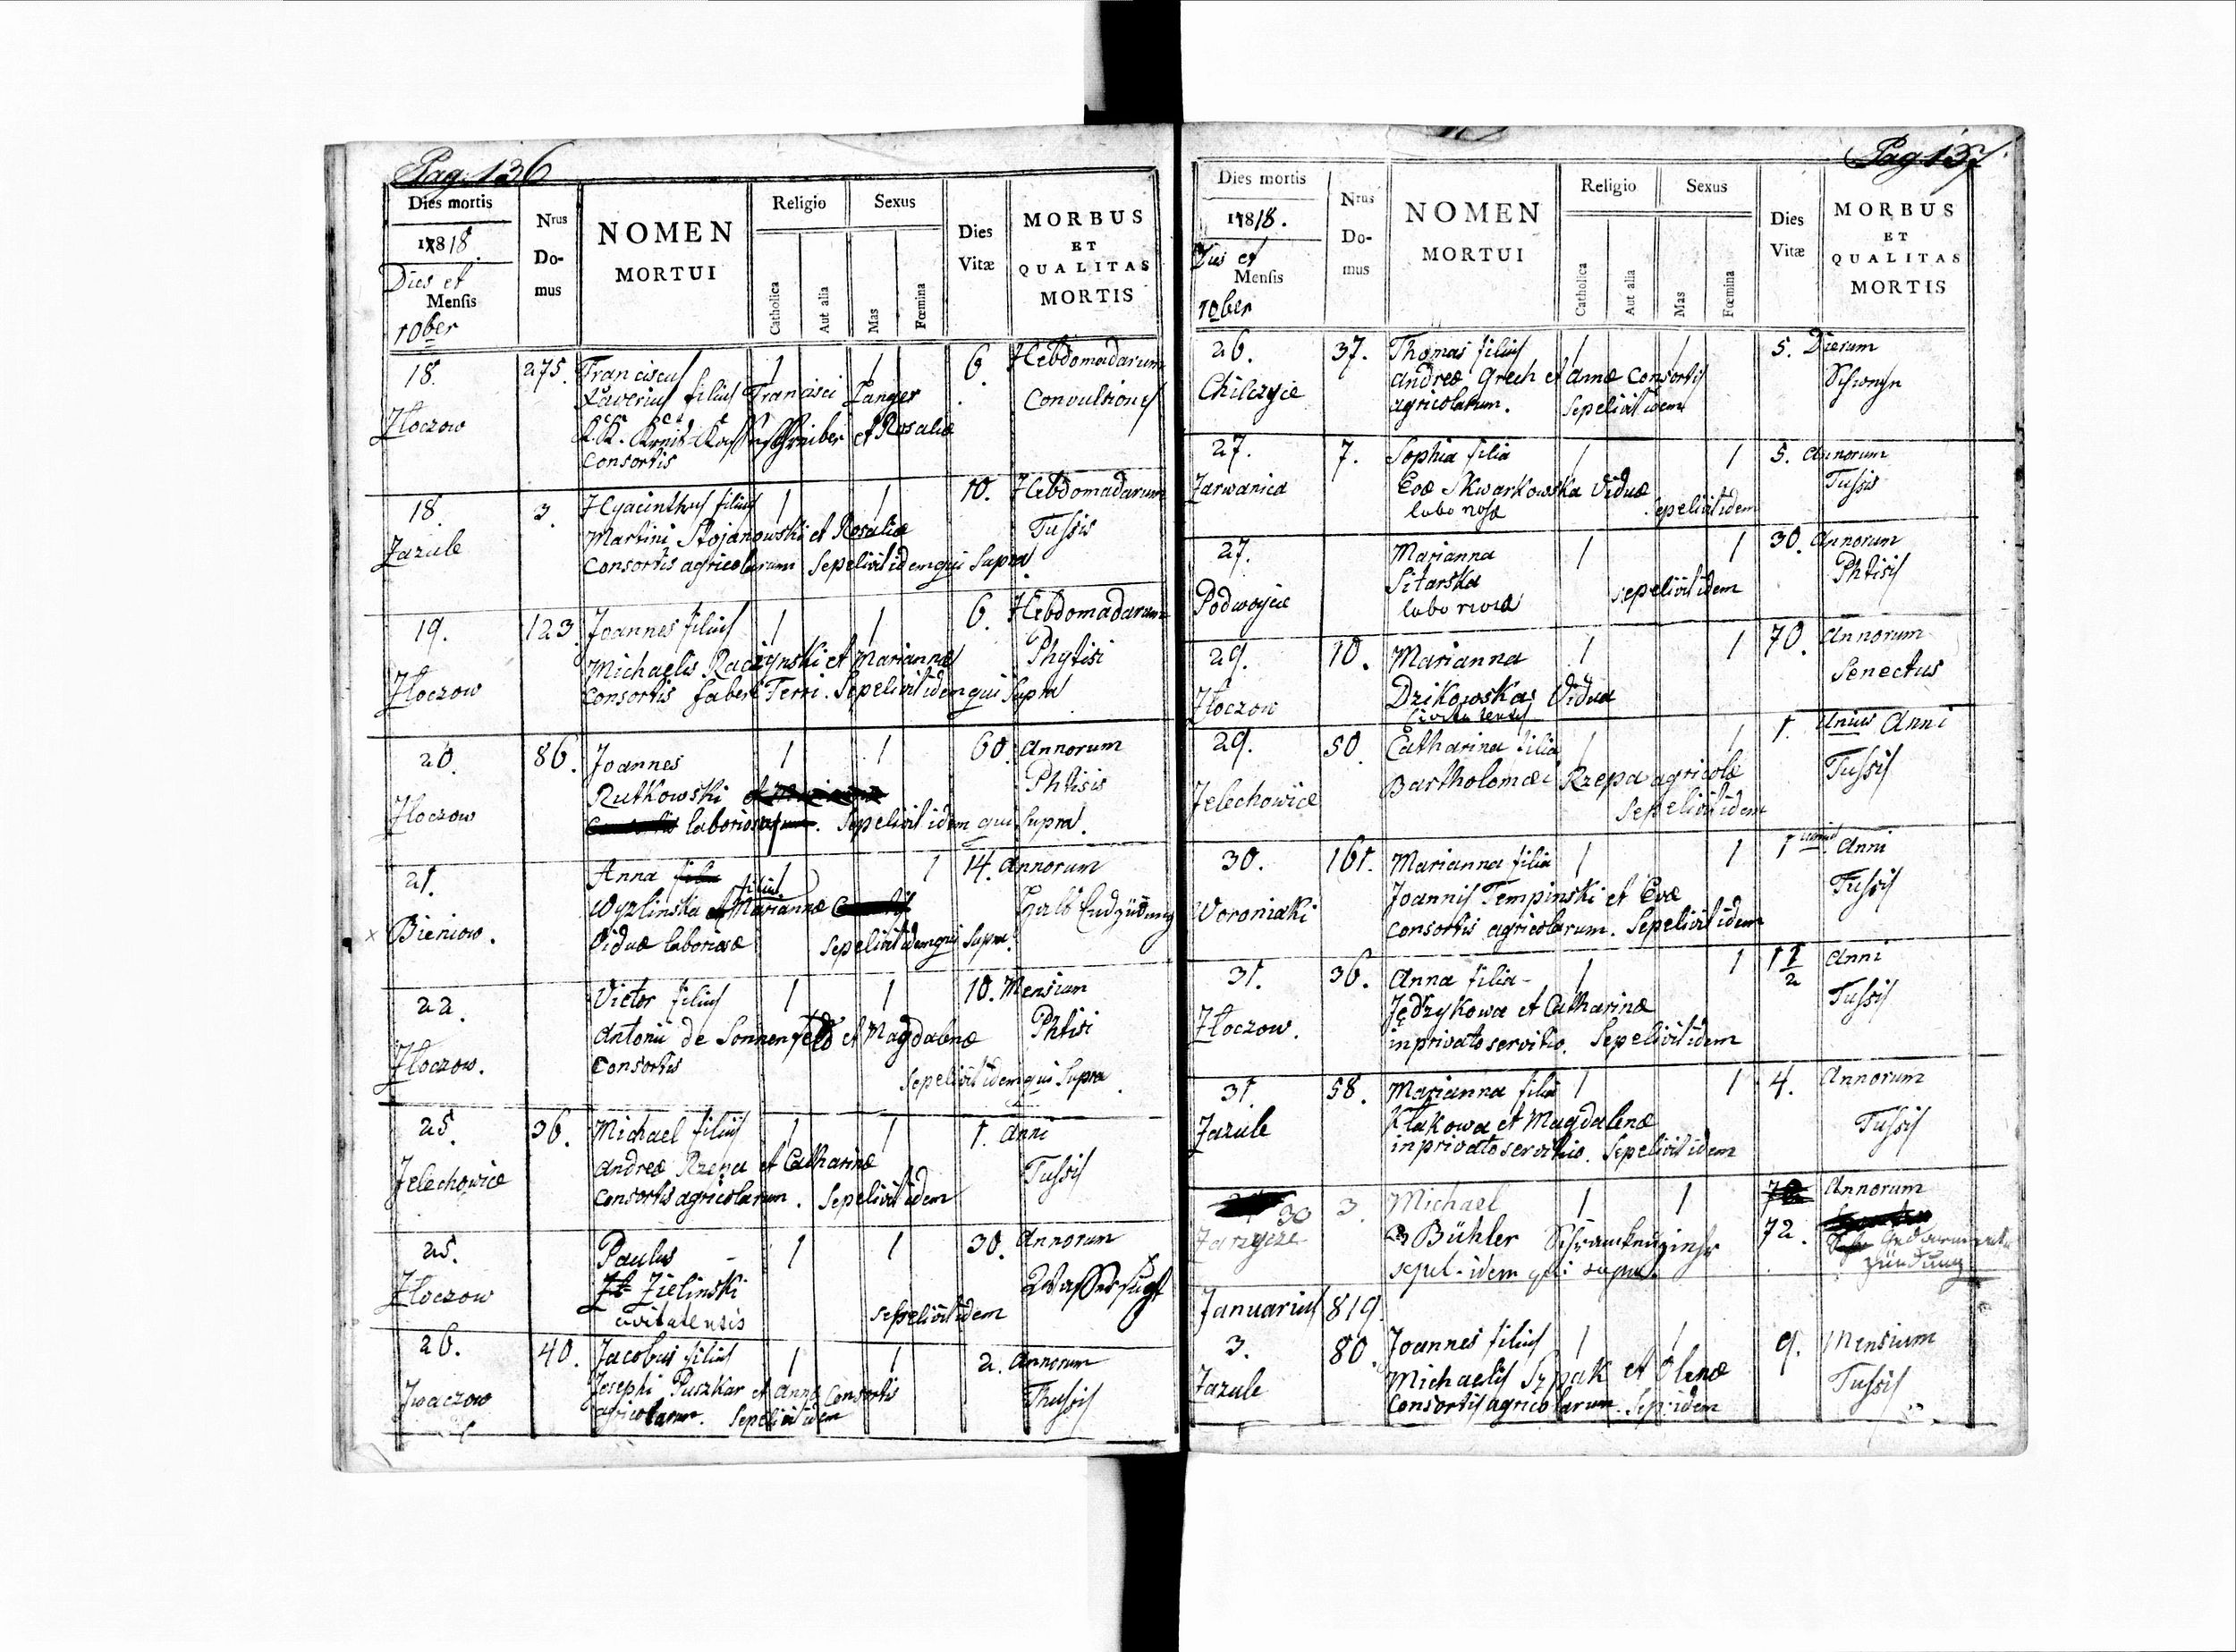 Pag. 136
Dies mortis
1818.
Dies et
Mensis
10ber
Nrus
Do-
mus
NOMEN
MORTUI
Religio
Catholica
Aut alia
Sexus
Mas
Fœmina
Dies
Vitæ
MORBUS
ET
QUALITAS
MORTIS
18. 275. Franciscus 1 1 6. Hebdomadarum
Xaverius filius Francisci Langer Convulsiones
Złoczow K.K. Kreis-Kassaschreiber et Rosaliæ
Consortis
18. 3. Hyacinthus filius 1 1 10. Hebdomadarum
Zazule Martini Stojanowski et Rosaliæ Tussis
Consortis agricolarum Sepelivit idem qui Supra
19. 123. Joannes filius 1 1 6. Hebdomadarum
Michaelis Raczynski et Mariannæ Phytisi
Złoczow Consortis fabri Ferri. Sepelivit idem qui Supra
20. 86. Joannes 1 1 60. Annorum
Rutkowski Phtisis
Złoczow laboriosa. Sepelivit idem qui Supra.
21. Anna 1 1 14. Annorum
filia
Wyzlinska Mariannæ Halb Endzüdung
Bieniow. Viduæ laboriosæ Sepelivit idem qui Supra.
22. Victor filius 1 1 10. Mensium
Antonii de Sonnenfeld et Magdalenæ Phtisi
Złoczow. Consortis
Sepelivit idem qui Supra.
25. 36. Michael filius 1 1 1. Anni
Andreæ Rzepa et Catharinæ Tussis
Jelechowice Consortis agricolarum. Sepelivit idem
25. Paulus 1 1 30. Annorum
Złoczow Zielinski Wassersucht
civitatensis Sepelivit idem
26. 40. Jacobus filius 1 1 2. Annorum
Jwaczow Josephi Puszkar et Annæ Consortis Thussis
agricolarum. Sepelivit idem
Pag 137
Dies mortis
1818.
Dies et
Mensis
10ber
Nrus
Do-
mus
NOMEN
MORTUI
Religio
Catholica
Aut alia
Sexus
Mas
Fœmina
Dies
Vitæ
MORBUS
ET
QUALITAS
MORTIS
26. 37. Thomas filius 1 1 5. Dierum
Chilczyce Andreæ Grech et Annæ Consortis
agricolarum. Sepelivit idem
27. 7. Sophia filia 1 1 5. Annorum
Zarwanica Evæ Skwarkowska Viduæ Tussis
laboriosæ Sepelivit idem
27. Marianna 1 1 30. Annorum
Sitarska Phtisis
Podwoycie laboriosa Sepelivit idem
29. 10. Marianna 1 1 70. Annorum
Złoczow Dzikowska Vidua Senectus
Civitatensis
29. 50. Catharina filia 1 1 1. Unius Anni
Jelechowice Bartholomæi Rzepa agricolæ Tussis
Sepelivit idem
30. 161. Marianna filia 1 1 1 unius Anni
Joannis Tempinski et Evæ Tussis
Woroniaki Consortis agricolarum. Sepelivit idem
31. 36. Anna filia 1 1 1 1/2 Anni
Jędzykowa et Catharinæ Tussis
Złoczow. in privato servitio. Sepelivit idem
31. 58. Marianna filia 1 1 4. Annorum
Zazule Kłakowa et Magdalenæ Tussis
in privato servitio. Sepelivit idem
30 3. Michael 1 1 Annorum
Bühler 72.
zündung
sepel. idem qui supra.
Januarius 819.
3. 80. Joannes filius 1 1 9. Mensium
Zazule Michaelis Szpak et Olenæ Tussis
Consortis agricolarum. Sep. idem